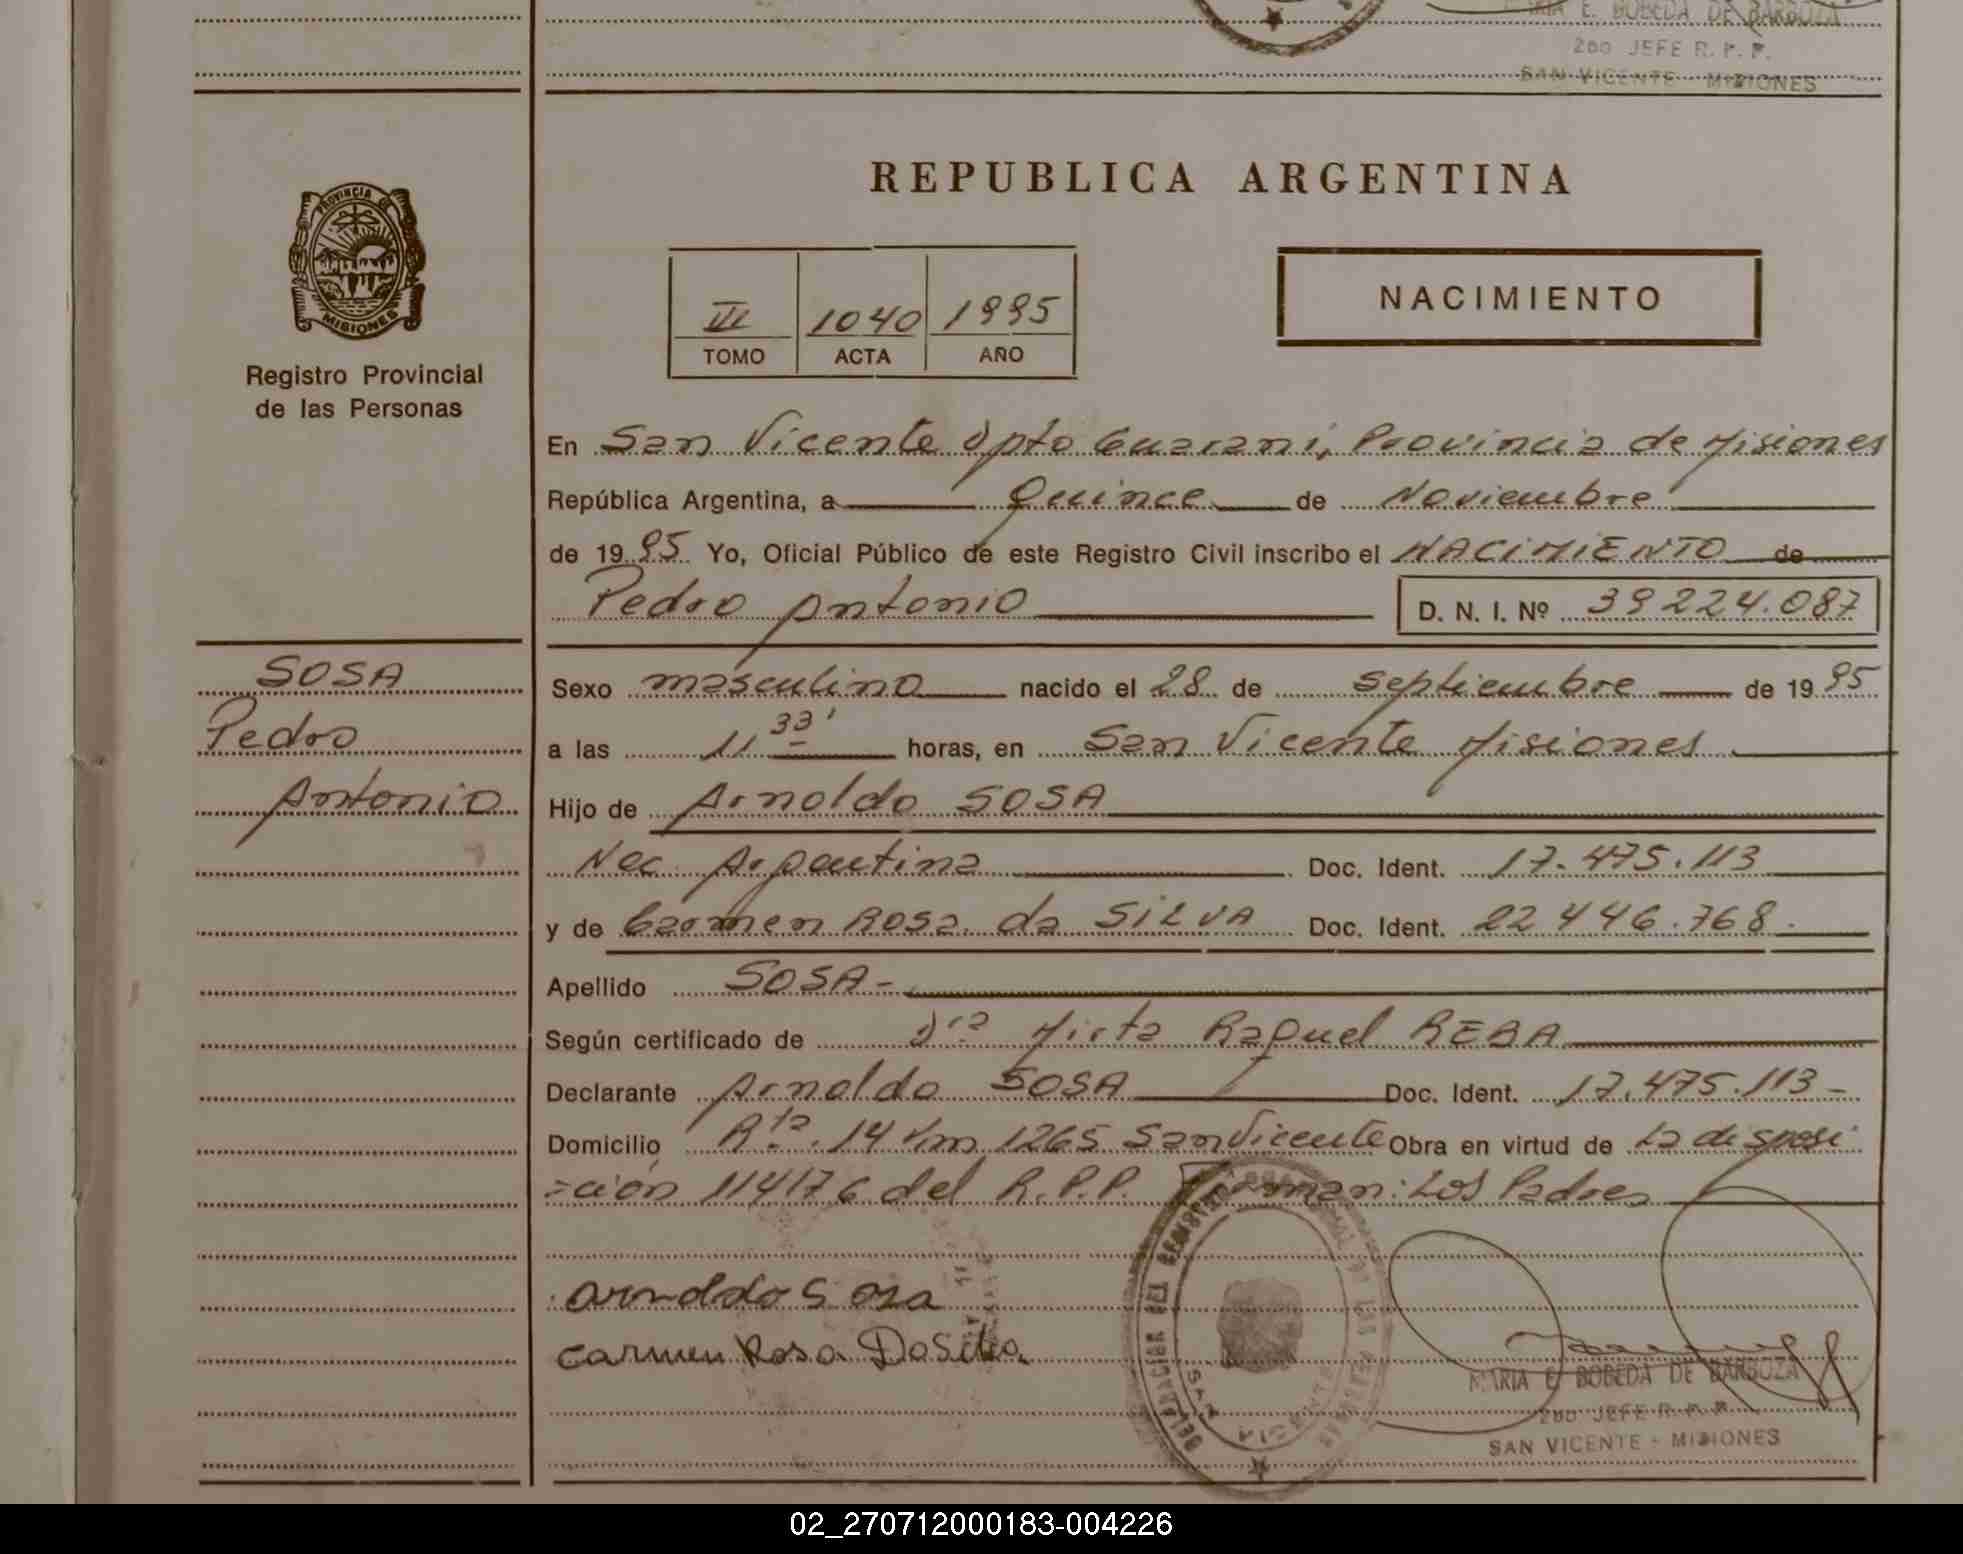 MARIA E. BOBEDA DE BARBOZA
2DO JEFE R. P. P.
SAN VICENTE - MISIONES
PROVINCIA DE
MISIONES
Registro Provincial
de las Personas
REPUBLICA ARGENTINA
VI 1040 1995
TOMO ACTA AÑO
NACIMIENTO
En San Vicente Dpto Guaraní, Provincia de Misiones
República Argentina, a Quince de Noviembre
de 1995 Yo, Oficial Público de este Registro Civil inscribo el NACIMIENTO de
Pedro Antonio D. N. I. Nº 39224.087
SOSA
Pedro
Antonio
Sexo masculino nacido el 28 de septiembre de 1995
a las 11 33' horas, en San Vicente Misiones
Hijo de Arnoldo SOSA
Nac. Argentina Doc. Ident. 17.475.113
y de Carmen Rosa da SILVA Doc. Ident. 22446.768.
Apellido SOSA-
Según certificado de Dra Mirta Raquel REBA
Declarante Arnoldo SOSA Doc. Ident. 17.475.113-
Domicilio Rta. 14 Km 1265 San Vicente Obra en virtud de La disposi
=ción 114/76 del R.P.P. Firman: Los Padres
Arnoldo Sosa
Carmen Rosa DaSilva
MARIA E. BOBEDA DE BARBOZA
2DO JEFE R. P. P.
SAN VICENTE - MISIONES
02_270712000183-004226